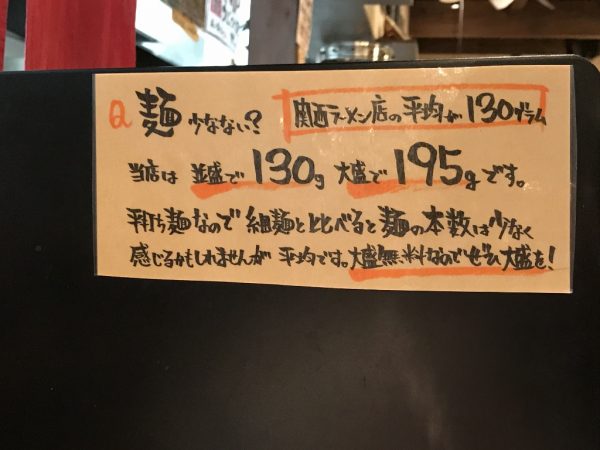 Q 麺 少なない? 関西ラーメン店の平均が130グラム
当店は 並盛で 130g 大盛で 195gです。
平打ち麺なので 細麺と比べると麺の本数は少なく
感じるかもしれませんが 平均です。大盛無料なのでぜひ大盛を!